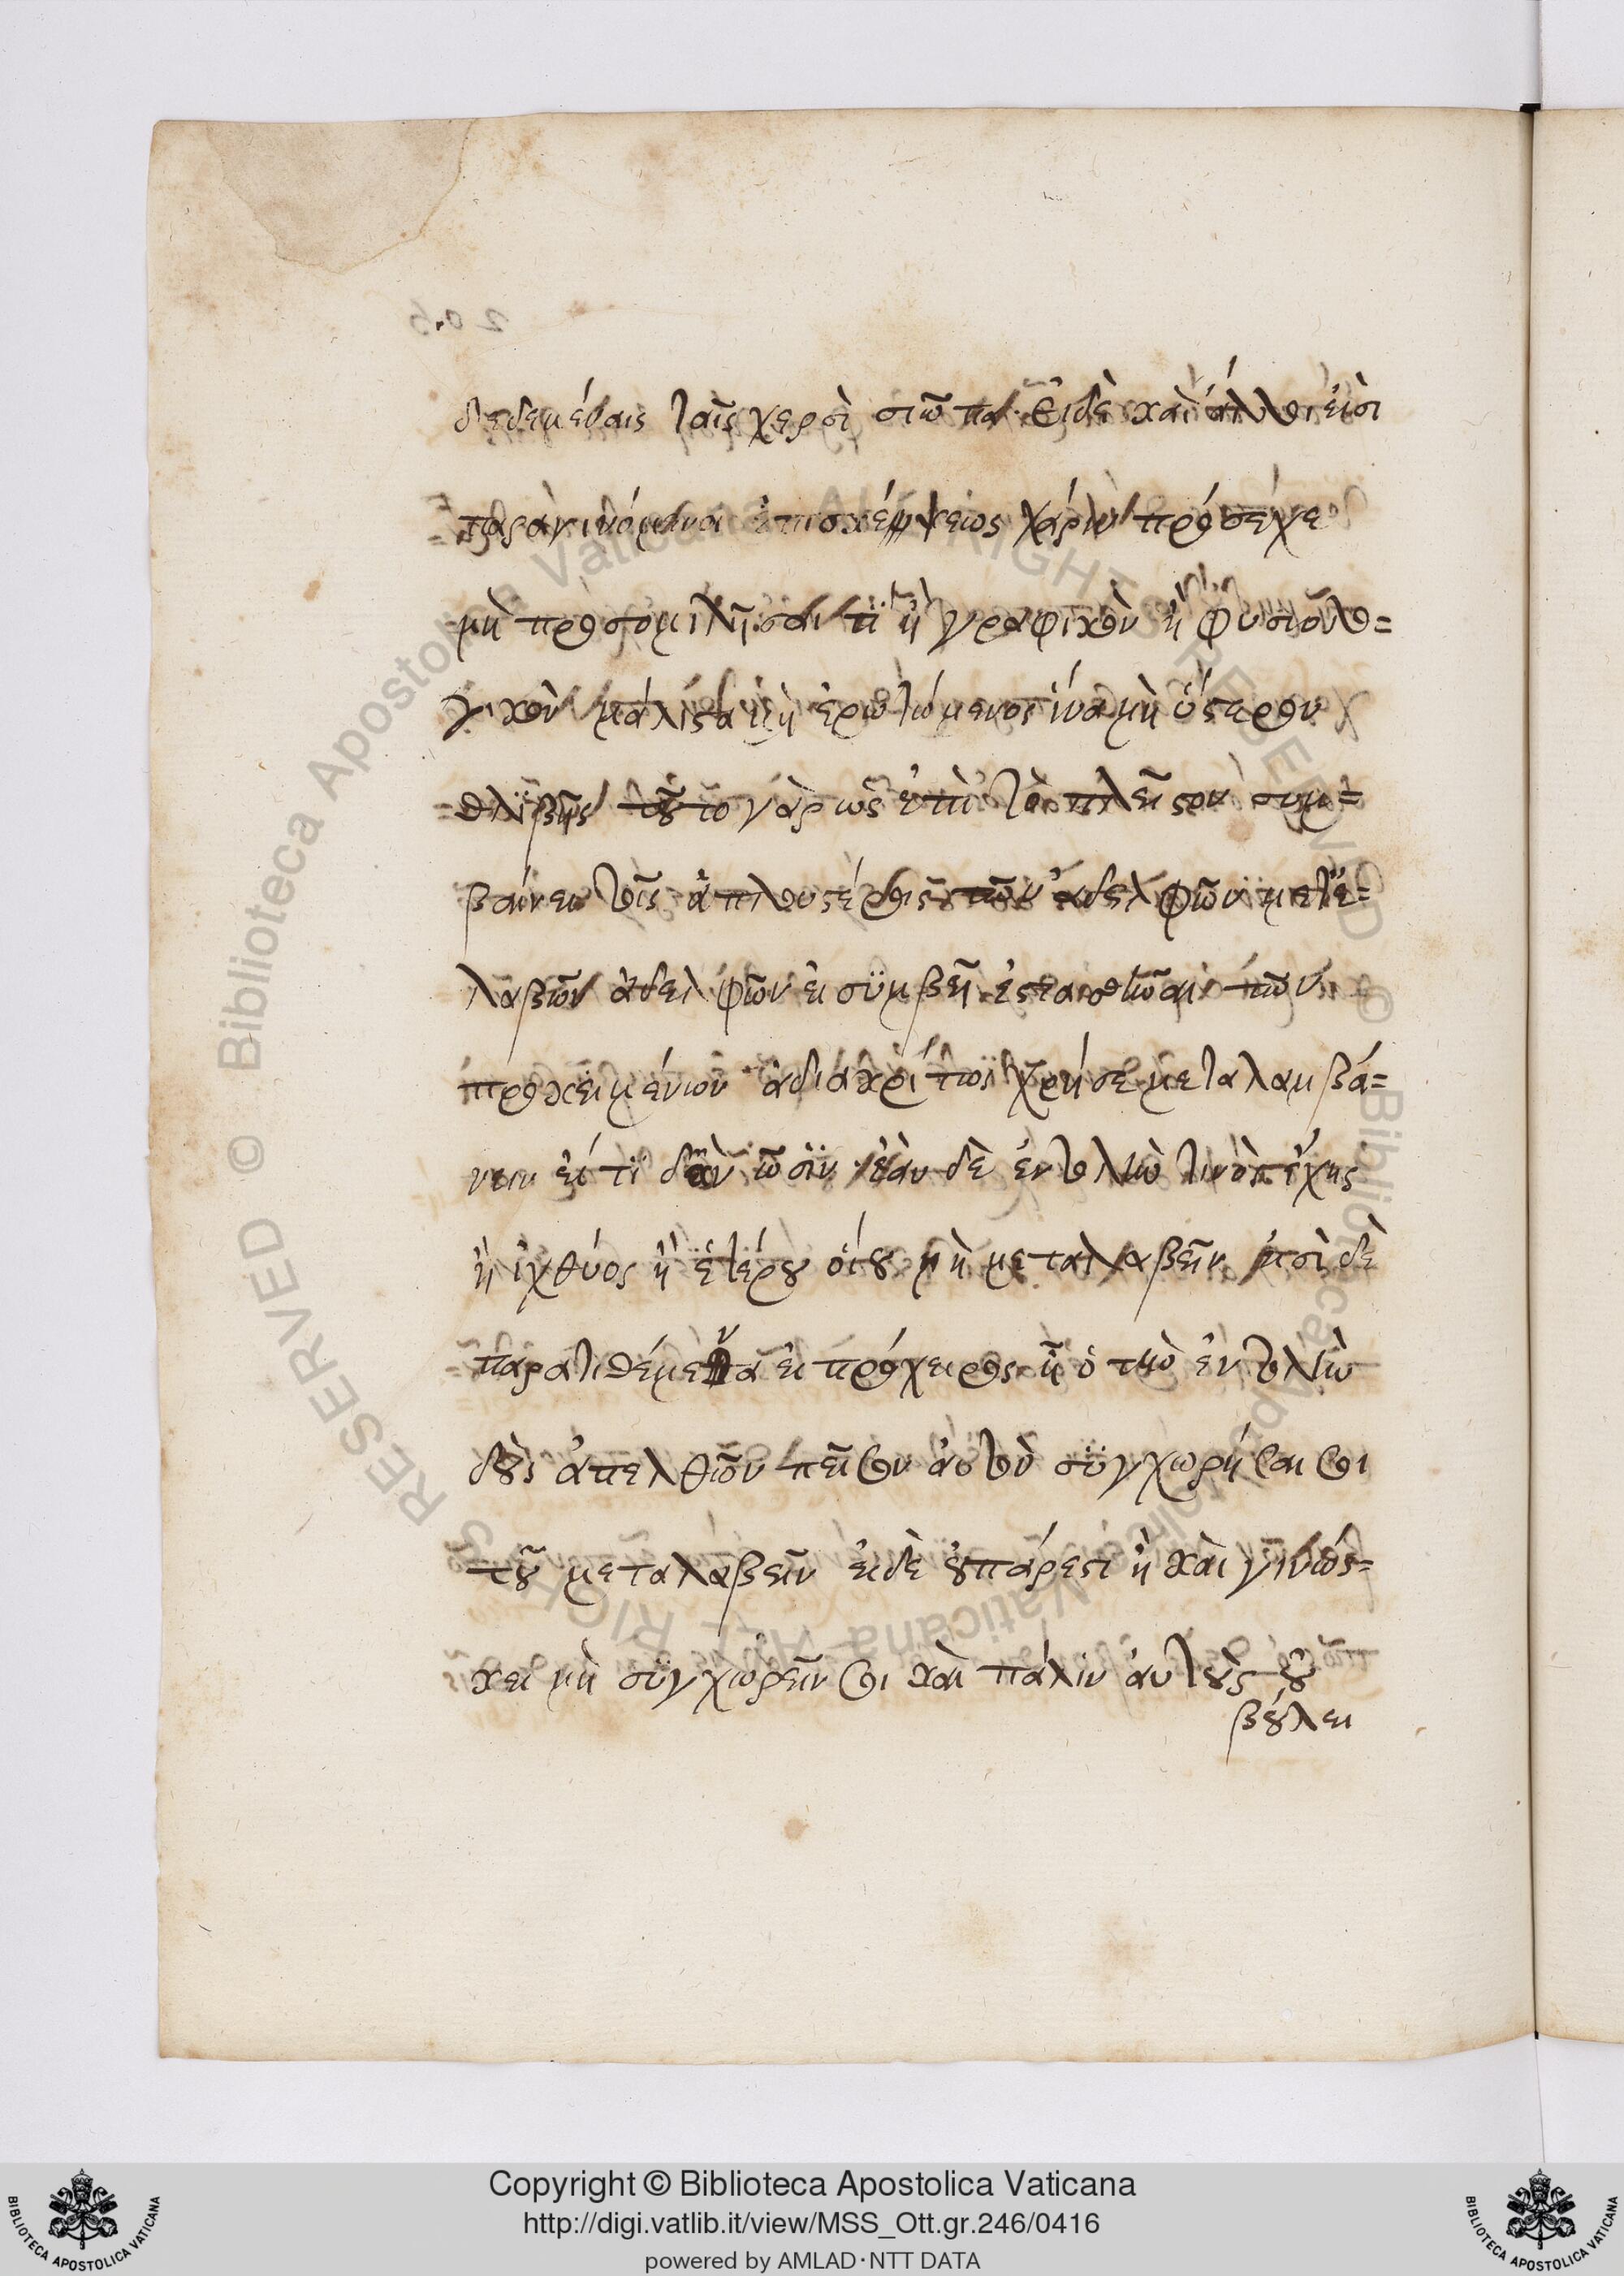 δεδεμέναις ταῖς χερσὶ σιῶπα. Εἰδὲ καὶ ἄλλοι εἰσὶ
παραγινόμενοι ἐπισκέψεως χάριν πρόσεχε
μὴ προσομιλῆσαι τὶ ἢ γραφικὸν ἢ φυσιολο=
γικὸν μάλιστα μὴ ἐρωτώμενος ἵνα μὴ ὕστερον
θλιβῆς τοῦτο γὰρ ὡς ἐπὶ τὸ πλεῖστον συμ=
βαίνει τοῖς ἁπλουστέροις τῶν ἀδελφῶν μετὰ
λαβὼν ἀδελφῶν εἰ συμβῆ τῶν
προκειμένων ἀδιακρίτως χρή σε μεταλαμβά=
νειν εἴ τι δἂν ὦσιν. ἐὰν δὲ ἐντολὴν τινὸς ἔχης
ἢ ἰχθύος ἢ ἑτέρου οἵου μὴ μεταλαβεῖν εἰσὶ δὲ
παρατιθέμενα εἰ πρόχειρος ἢ ὁ τὴν ἐντολὴν
δοὺς ἀπελθὼν πεῖσον αὐτὸν συγχωρῆσαι σοι
τοῦ μεταλαβεῖν εἰδὲ οὐπάρεστι ἢ καὶ γινώσ=
κει μὴ συγχωρεῖν σοι καὶ πάλιν αὐτοὺς οὐ
βούλει
Copyright © Biblioteca Apostolica Vaticana
http://digi.vatlib.it/view/MSS_Ott.gr.246/0416
powered by AMLAD·NTT DATA
BIBLIOTECA APOSTOLICA VATICANA
BIBLIOTECA APOSTOLICA VATICANA